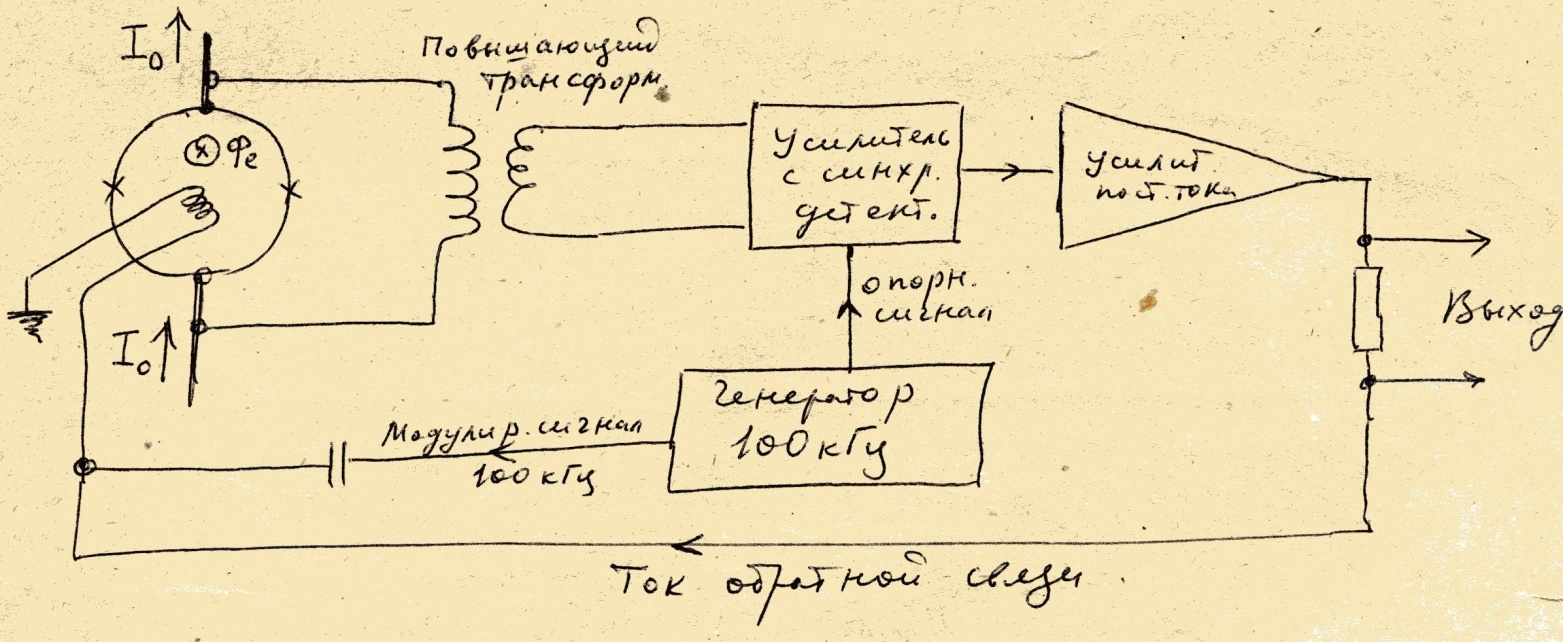 I₀
Повышающий
трансформ.
Φe
Усилитель
с синхр.
детект.
Усилит.
пост. тока
опорн.
сигнал
Выход
I₀
Генератор
100 кГц
Модулир. сигнал
100 кГц
Ток обратной связи.